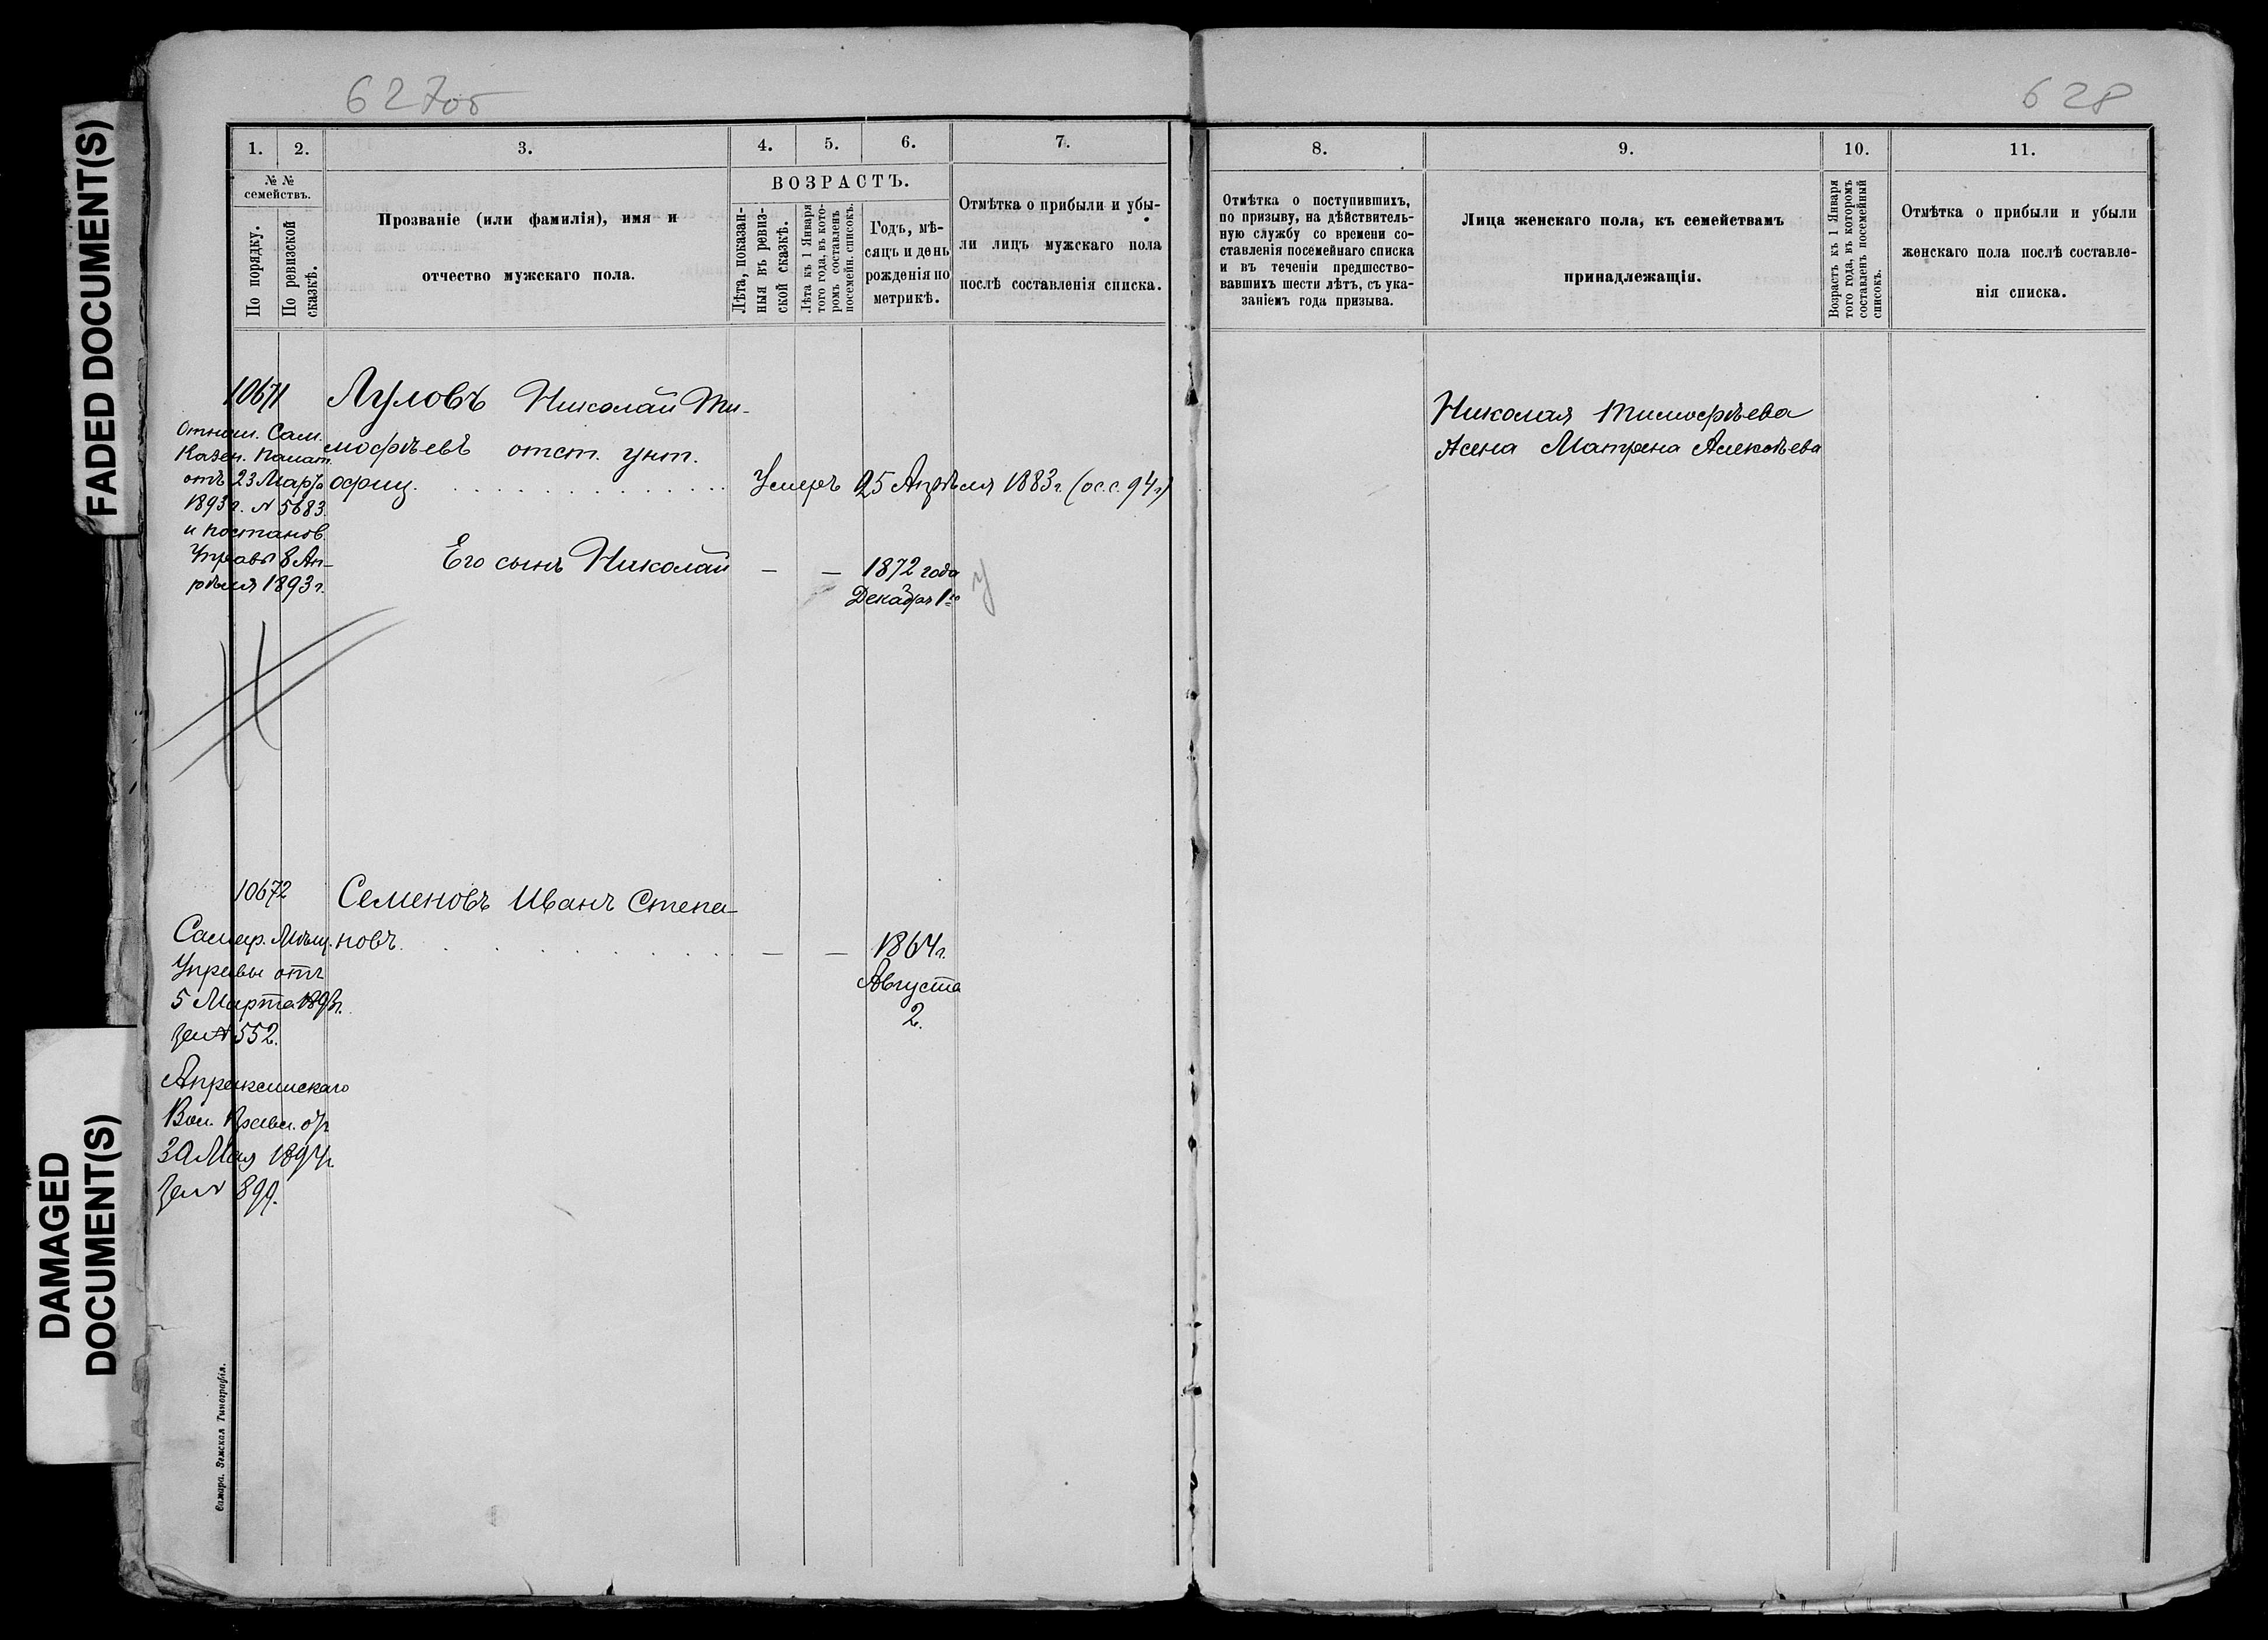 FADED DOCUMENT(S)
DAMAGED
DOCUMENT(S)
627об
1.
2.
3.
4.
5.
6.
7.
№ №
семействъ.
По порядку.
По ревизской
сказкѣ.
Прозваніе (или фамилія), имя и
отчество мужскаго пола.
ВОЗРАСТЪ.
Лѣта, показан-
ныя въ ревиз-
ской сказкѣ.
Лѣта къ 1 Января
того года, въ кото-
ромъ составленъ
посемейн. списокъ.
Годъ, мѣ-
сяцъ и день
рожденія по
метрикѣ.
Отмѣтка о прибыли и убы-
ли лицъ мужскаго пола
послѣ составленія списка.
10671
Луловъ Николай Ти-
мофѣевъ отст. унт.
офиц.
Умеръ 25 Апрѣля 1883 г. (ос. с. 94 г)
Отнош. Сам.
Казен. Палат.
отъ 23 Марта
1893 г. № 5683.
и постанов.
Управы 8 Ап-
рѣля 1893 г.
Его сынъ Николай — — 1872 года
Декабря 1го
у
10672
Семеновъ Иванъ Степа-
новъ. — — 1864 г.
Августа
2.
Самар. Мѣщ.
Управы отъ
5 Марта 189 г.
за № 552.
Апраксинскаго
Вол. Правл. отъ
30 Мая 1894 г.
за № 899.
Самара. Земская Типографія.
628
8.
9.
10.
11.
Отмѣтка о поступившихъ,
по призыву, на дѣйствитель-
ную службу со времени со-
ставленія посемейнаго списка
и въ теченіи предшество-
вавшихъ шести лѣтъ, съ ука-
заніемъ года призыва.
Лица женскаго пола, къ семействамъ
принадлежащія.
Возрастъ къ 1 Января
того года, въ которомъ
составленъ посемейный
списокъ.
Отмѣтка о прибыли и убыли
женскаго пола послѣ составле-
нія списка.
Николая Тимофѣева
Жена Матрена Алексѣева